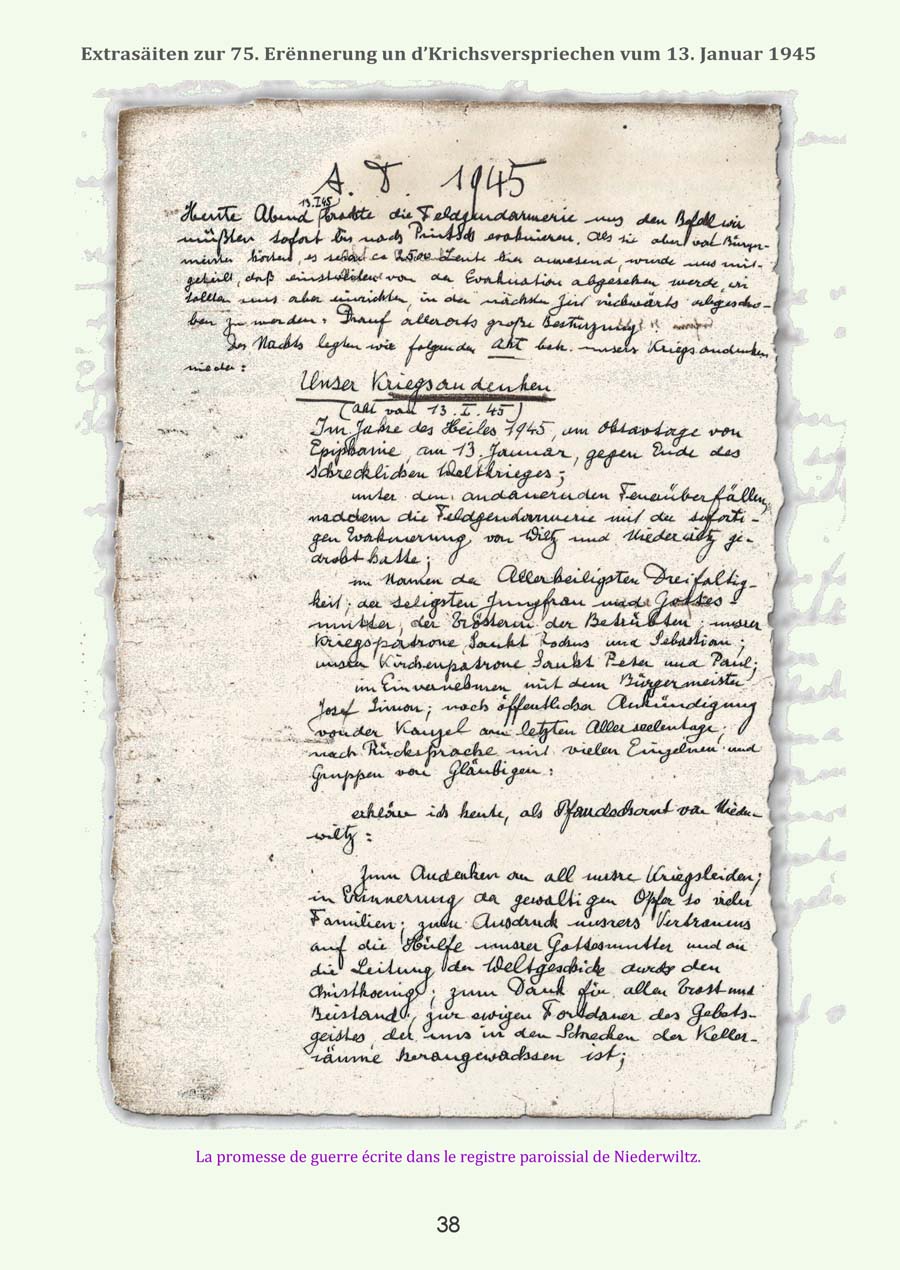 Extrasäiten zur 75. Erënnerung un d’Krichsverspriechen vum 13. Januar 1945
A. D. 1945
13.I.45
Heute Abend brachte die Feldgendarmerie uns den Befehl wir
müßten sofort bis nach Pintsch evakuieren. Als sie aber vom Bürger-
meister hörten, es seien ca 2500 Leute hier anwesend, wurde uns mit-
geteilt, daß einstweilen von der Evakuation abgesehen werde, wir
sollten uns aber einrichten, in der nächsten Zeit rückwärts abgescho-
ben zu werden. Drauf allerorts große Bestürzung
Des Nachts legten wir folgenden Akt betr. unsers Kriegsandenken
nieder:
Unser Kriegsandenken
(Akt von 13.I.45)
Im Jahre des Heiles 1945, am Oktavtage von
Epiphanie, am 13. Januar, gegen Ende des
schrecklichen Weltkrieges;
unter den andauernden Feuerüberfällen,
nachdem die Feldgendarmerie mit der soforti-
gen Evakuierung von Wiltz und Niederwiltz ge-
droht hatte;
im Namen der Allerheiligsten Dreifaltig-
keit; der seligsten Jungfrau und Gottes-
mutter, der Trösterin der Betrübten; unserer
Kriegspatrone Sankt Rochus und Sebastian;
unserer Kirchenpatrone Sankt Peter und Paul;
im Einvernehmen mit dem Bürgermeister
Josef Simon; nach öffentlicher Ankündigung
von der Kanzel am letzten Allerseelentage;
nach Rücksprache mit vielen Einzelnen und
Gruppen von Gläubigen:
erkläre ich heute, als Pfarrdechant von Nieder-
wiltz:
Zum Andenken an all unsre Kriegsleiden;
in Erinnerung der gewaltigen Opfer so vieler
Familien; zum Ausdruck unsrers Vertrauens
auf die Hülfe unsrer Gottesmutter und an
die Leitung der Weltgeschicke durch den
Christkoenig; zum Dank für allen Trost und
Beistand; zur ewigen Fortdauer des Gebets-
geistes der uns in den Schrecken der Keller-
räume herangewachsen ist;
La promesse de guerre écrite dans le registre paroissial de Niederwiltz.
38